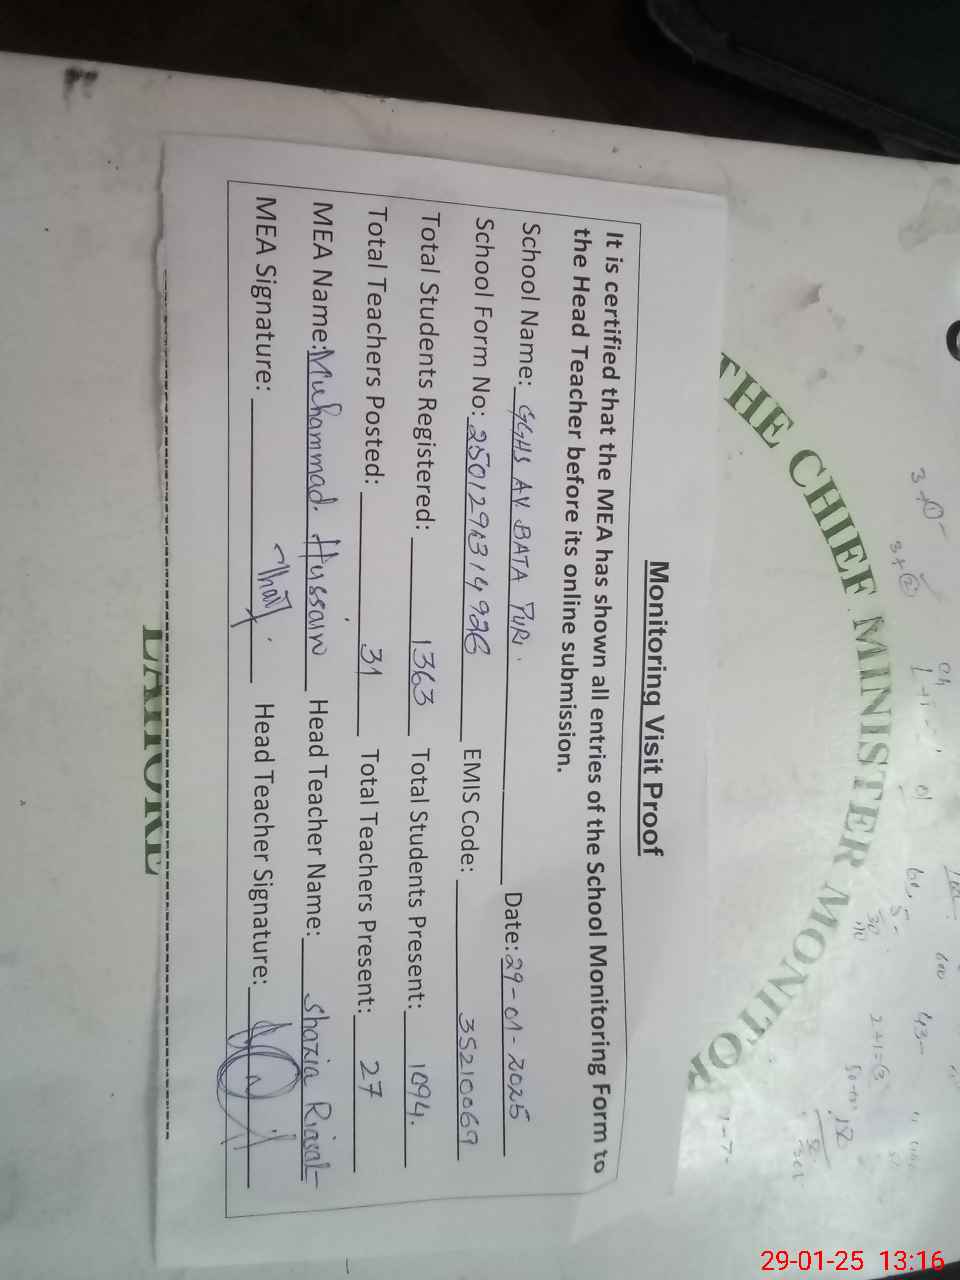 Monitoring Visit Proof
It is certified that the MEA has shown all entries of the School Monitoring Form to
the Head Teacher before its online submission.
School Name: GGHS AV BATA PURI. Date: 29-01-2025
School Form No: EMIS Code: 35210069
Total Students Registered: 1363 Total Students Present: 1094.
Total Teachers Posted: 31 Total Teachers Present: 27
MEA Name: Muhammad Hussain Head Teacher Name: Shazia Riasat
MEA Signature: Head Teacher Signature:
THE CHIEF MINISTER MONITOR
LAHORE
29-01-25 13:16